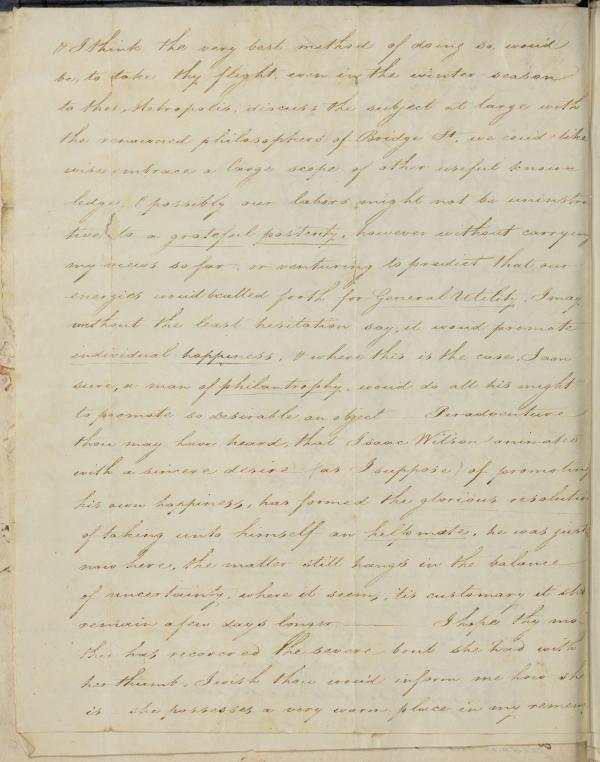 & I think the very best method of doing so, would
be, to take thy flight, even in the winter season
to this Metropolis, discuss the subject at large with
the renowned philosophers of Bridge St, we could like
wise embrace a large scope of other useful know-
ledge, & possibly our labors might not be uninstruc
tive to a grateful posterity, however without carrying
my views so far, or venturing to predict that our
energies would be called forth for General Utility, I may
without the least hesitation say, it would promote
individual happiness, & where this is the case, I am
sure, a man of philanthrophy, would do all his might
to promote so desirable an object — Peradventure
thou may have heard, that Isaac Wilson animated
with a sincere desire (as I suppose) of promoting
his own happiness, has formed the glorious resolution
of taking unto himself an helpmate, he was just
now here, the matter still hangs in the balance
of uncertainty, where it seems, 'tis customary it
remain a few days longer — I hope thy mo-
ther has recovered the severe bout she had with
her thumb, I wish thou would inform me how she
is she possesses a very warm place in my remem